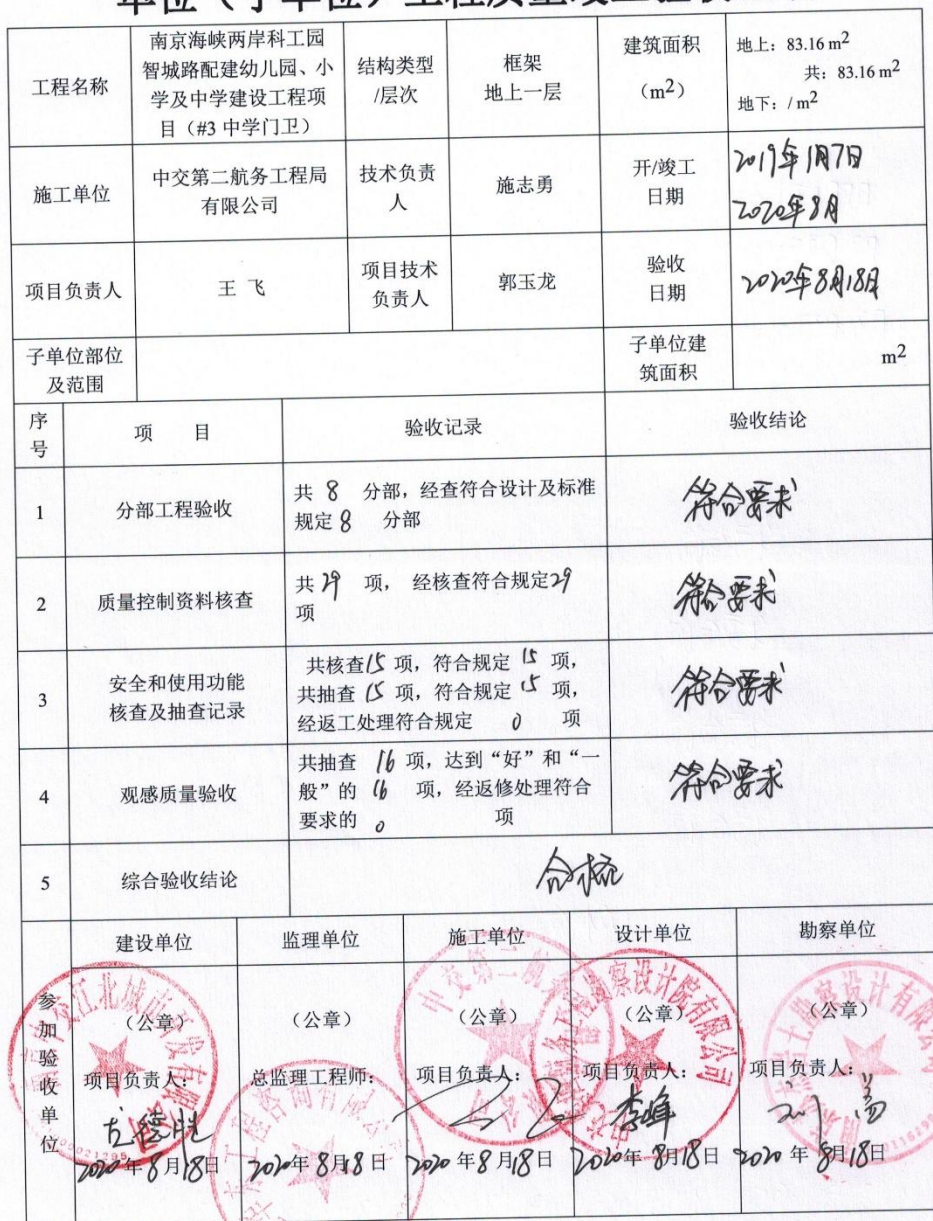 单位（子单位）工程质量竣工验收
工程名称
南京海峡两岸科工园
智城路配建幼儿园、小
学及中学建设工程项
目（#3 中学门卫）
结构类型
/层次
框架
地上一层
建筑面积
（m²）
地上：83.16 m²
共：83.16 m²
地下：/ m²
施工单位
中交第二航务工程局
有限公司
技术负责
人
施志勇
开/竣工
日期
2019年1月7日
2020年8月
项目负责人
王 飞
项目技术
负责人
郭玉龙
验收
日期
2020年8月18日
子单位部位
及范围
子单位建
筑面积
m²
序
号
项 目
验收记录
验收结论
1
分部工程验收
共 8 分部，经查符合设计及标准
规定 8 分部
符合要求
2
质量控制资料核查
共 29 项， 经核查符合规定29
项
符合要求
3
安全和使用功能
核查及抽查记录
共核查 15 项，符合规定 15 项，
共抽查 15 项，符合规定 15 项，
经返工处理符合规定 0 项
符合要求
4
观感质量验收
共抽查 16 项，达到“好”和“一
般”的 16 项，经返修处理符合
要求的 0 项
符合要求
5
综合验收结论
合格
参
加
验
收
单
位
建设单位
监理单位
施工单位
设计单位
勘察单位
（公章）
（公章）
（公章）
（公章）
（公章）
项目负责人：
总监理工程师：
项目负责人：
项目负责人：
项目负责人：
李峰
2020年8月18日
2020年8月18日
2020年8月18日
2020年8月18日
2020年8月18日